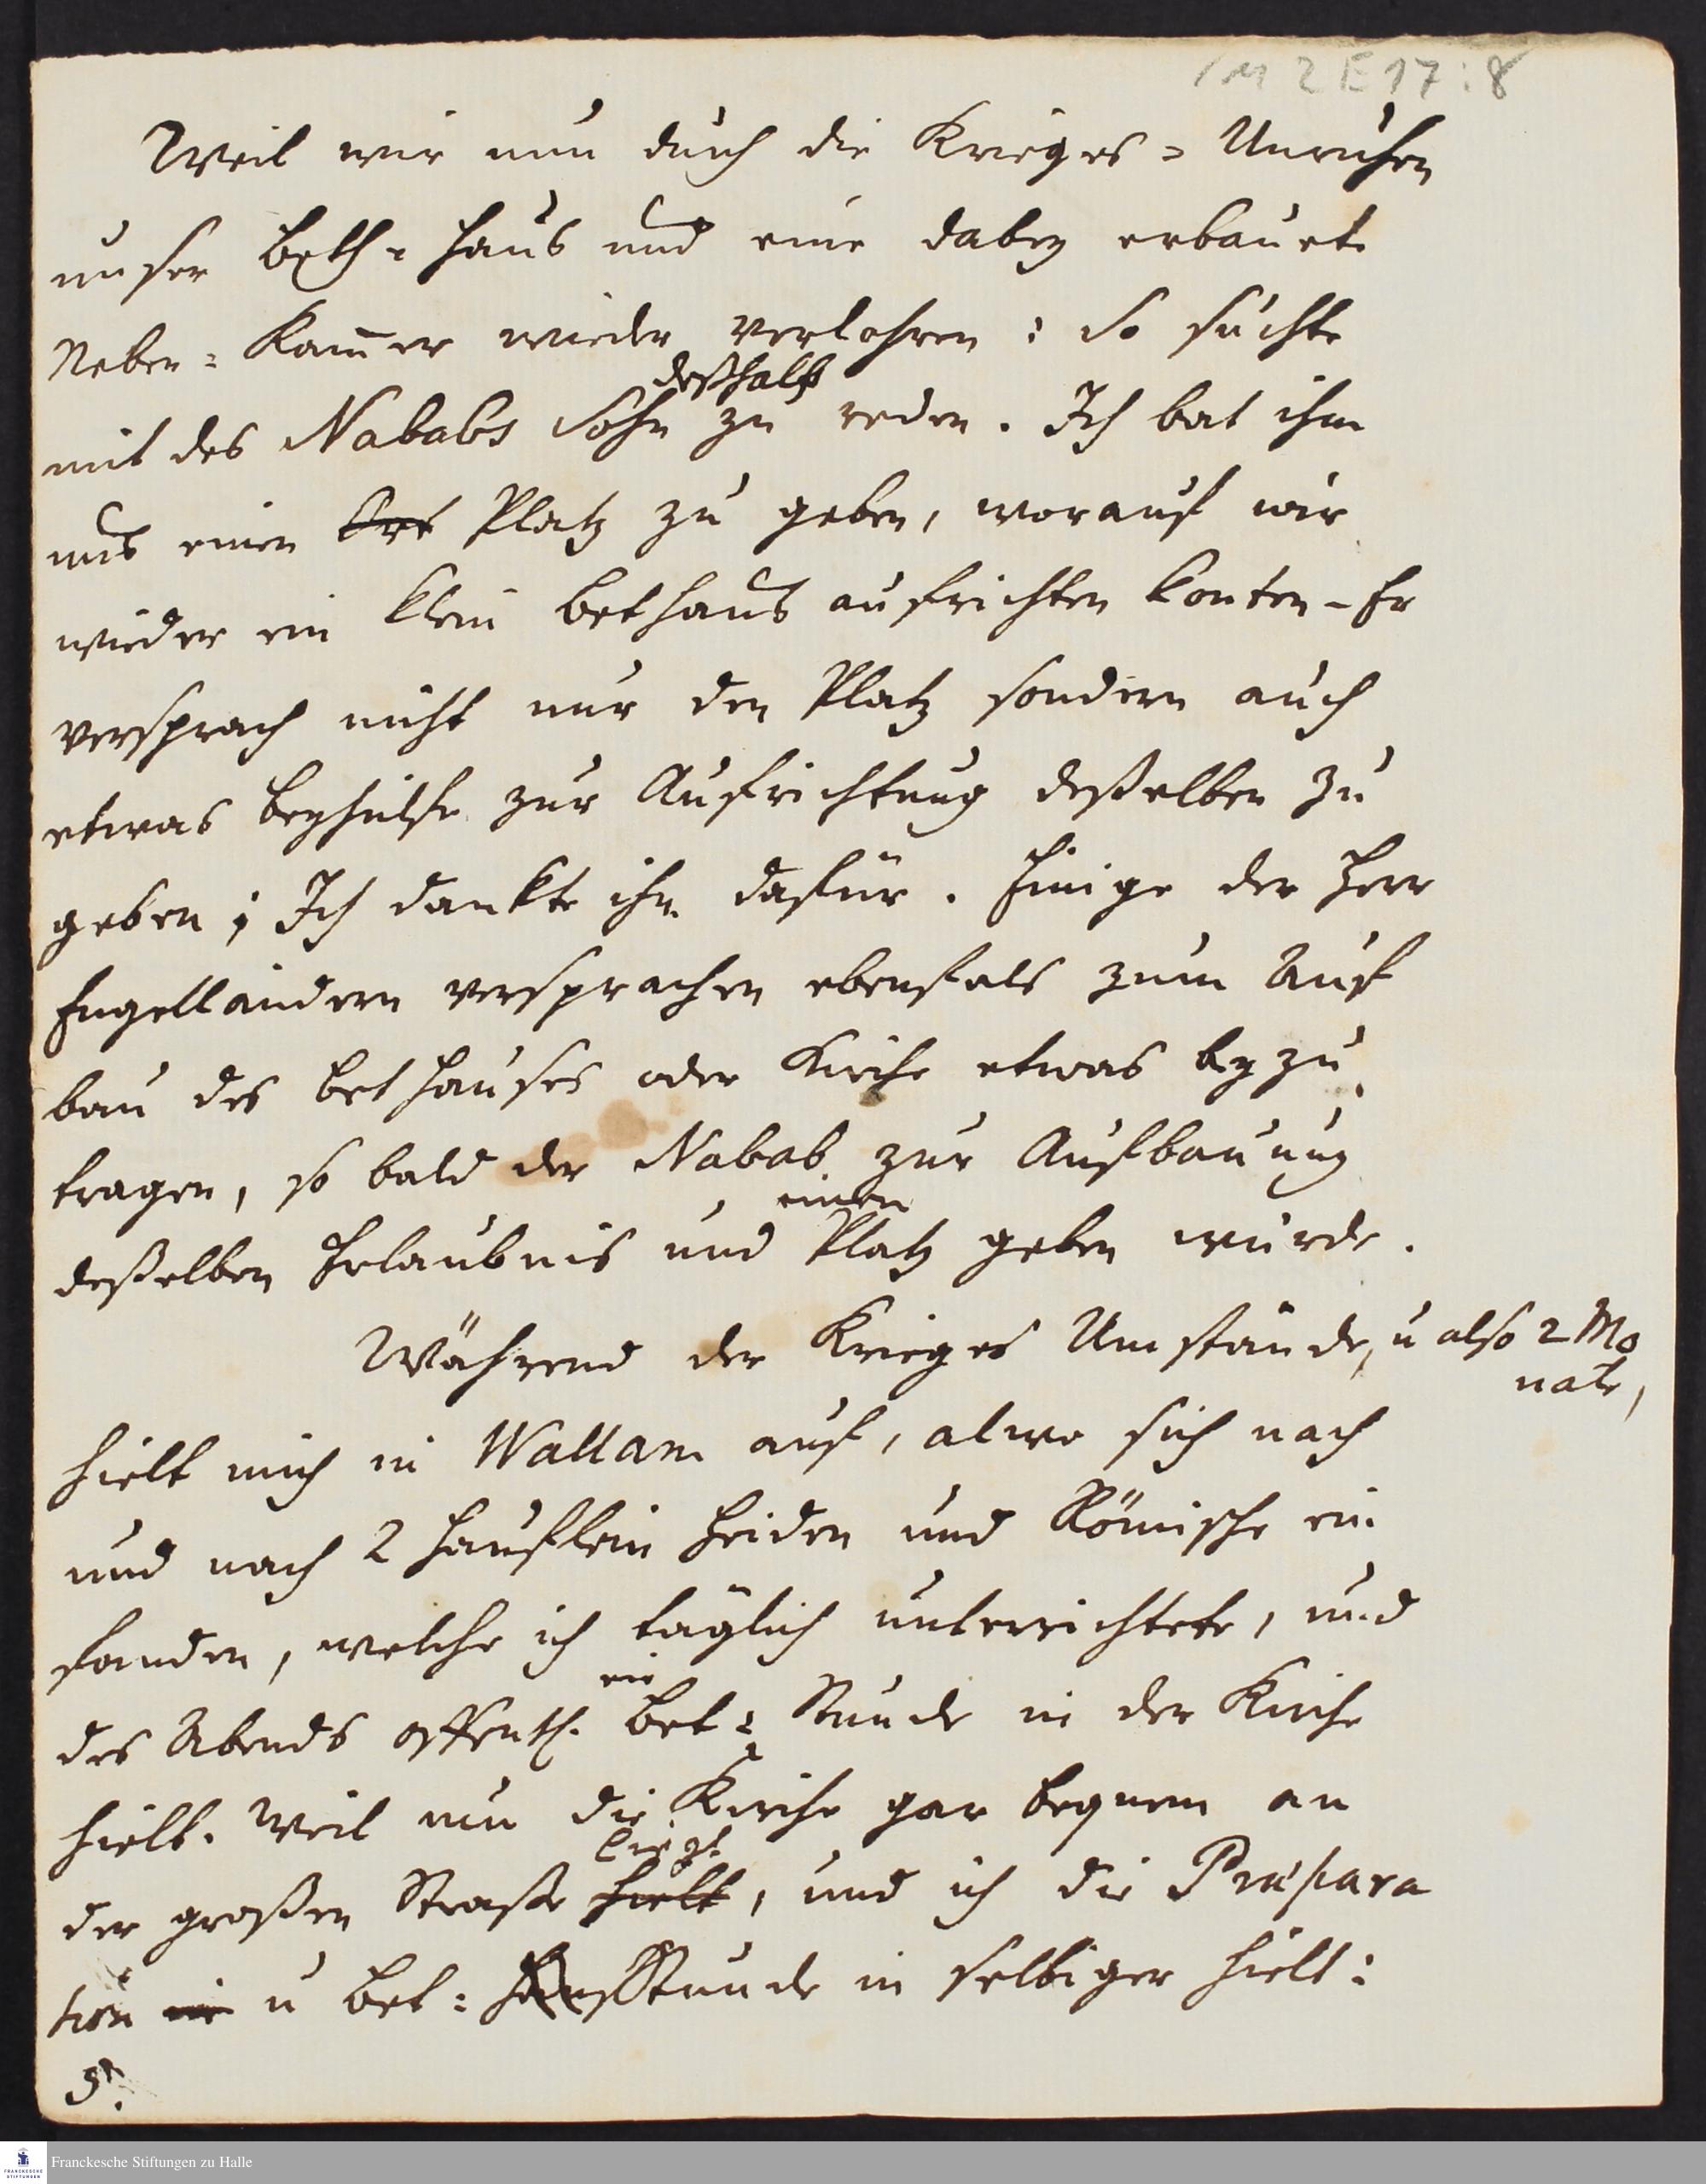 1M 2 E 17 : 8
Weil wir nun durch die Krieges = Unruhen
unser Beth = Haus und eine dabey erbauete
Neben = Kam̄er wieder verlohren : So suchte
deßhalb
mit des Nababs Sohn zu reden. Ich bat ihm
uns einen Ort Platz zu geben, worauf wir
wieder ein klein Bethaus aufrichten konten - Er
versprach nicht nur den Platz sondern auch
etwas Beyhülfe zur Aufrichtung deßelben zu
geben ; Ich dankte ihm dafür. Einige der Herr
Engelländern versprachen ebenfals zum Auf
bau des Bethauses oder Kirche etwas beyzu
tragen, so bald der Nabab zur Aufbauung
einen
deßelben Erlaubnis und Platz geben würde.
Während der Krieges Umstände, u also 2 Mo
nate,
hielt mich in Wallam auf, alwo sich nach
und nach 2 Häuflein Heiden und Römische ein
fanden, welche ich täglich unterrichtete, und
ein
des Abends öffentl. Bet = Stunde in der Kirche
hielt. Weil nun die Kirche gar bequem an
liegt
der großen Straße hielt, und ich die Præpara
tion u Bet = Stunde in selbiger hielt :
Franckesche Stiftungen zu Halle